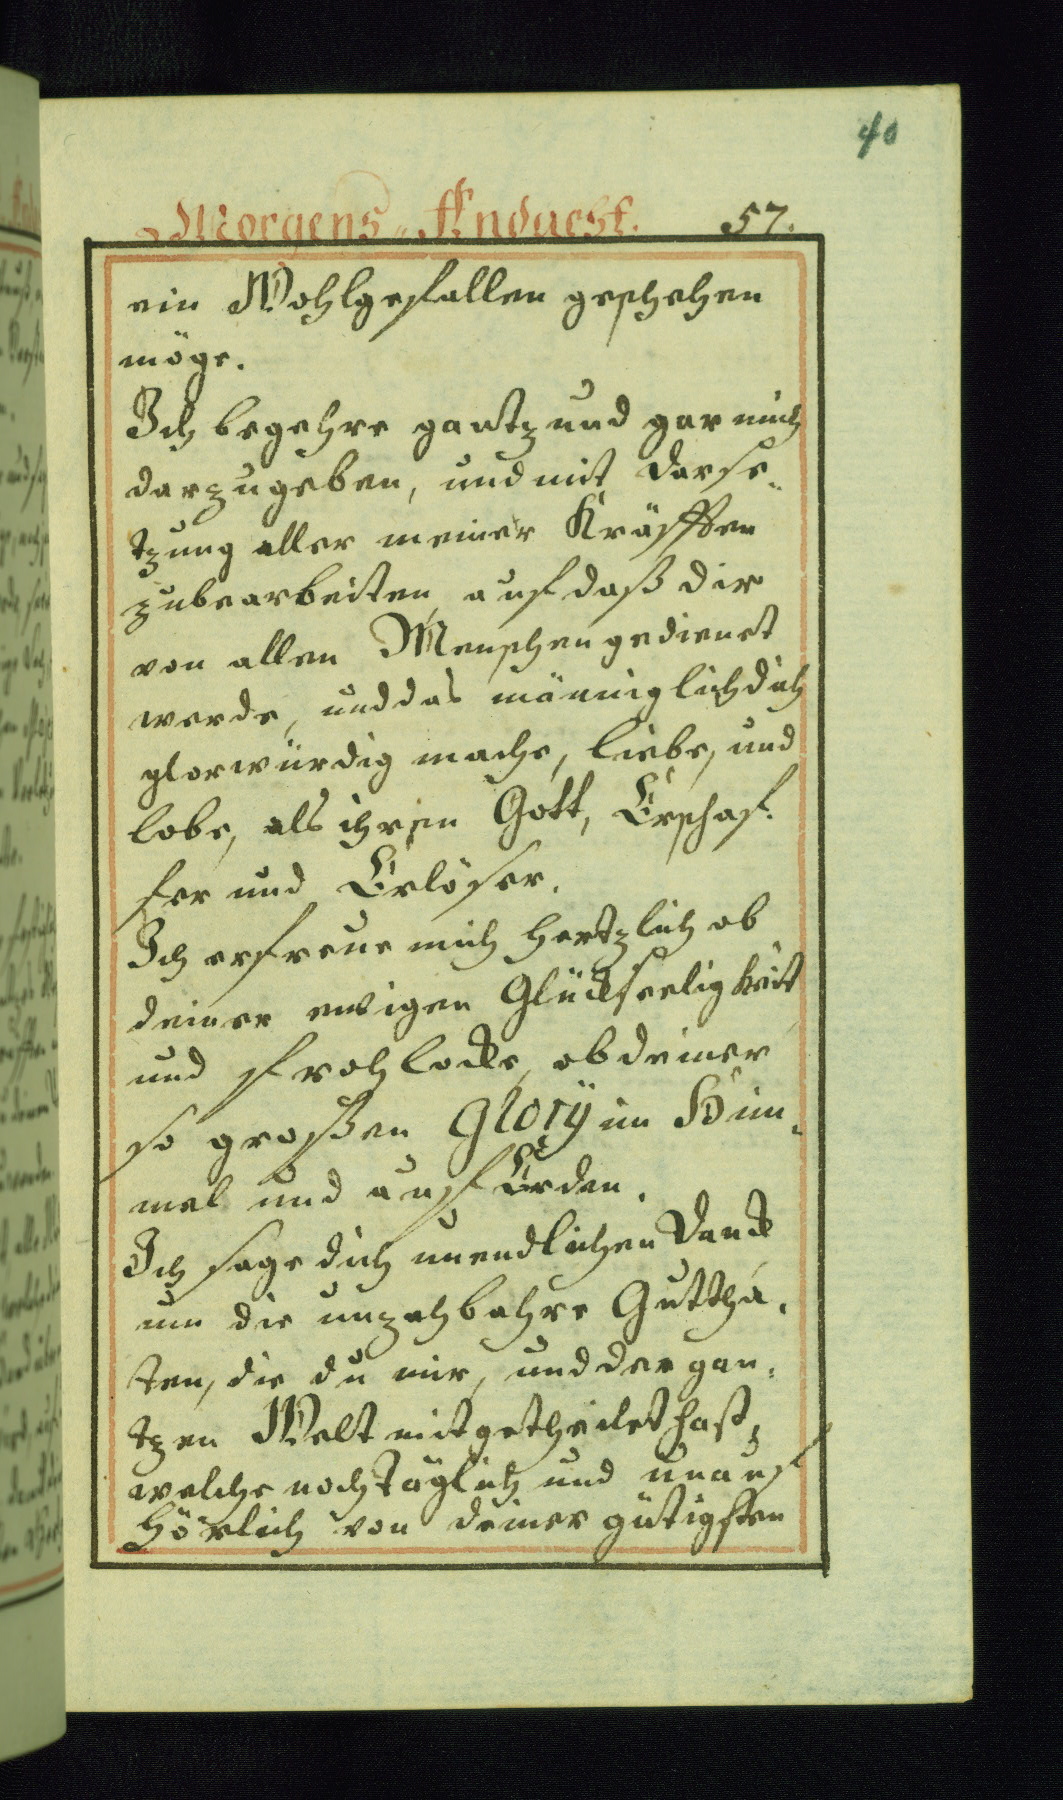 40
Morgens-Andacht. 57.
ein Wohlgefallen geschehen
möge.
Ich begehre gantz und gar mich
darzugeben, und mit darse-
tzung aller meiner Kräfften
zubearbeiten, auf daß dir
von allen Menschen gedienet
werde, und das männiglich dich
glorwürdig mache, liebe, und
lobe, als ihren Gott, Erschaf-
fer und Erlöser.
Ich erfreue mich hertzlich ob
deiner ewigen Glückseeligkeit
und frohlocke, ob deiner
so großen Glorÿ im Him-
mel und auf Erden.
Ich sage dich unendlichen Danck
um die unzahbahre Guttha-
ten, die du mir, und der gan-
tzen Welt mitgetheilet hast,
welche noch täglich und unauf
hörlich von deiner gütigsten